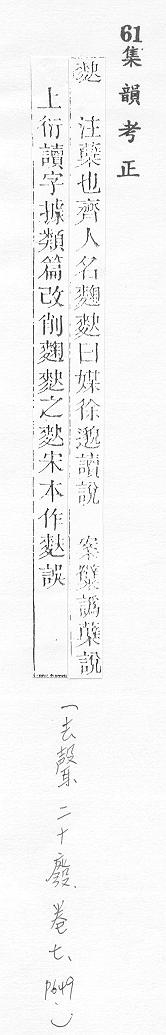 61 集韻考正
注蘖也齊人名麴曰媒徐邈讀說 案糱譌蘖說
上衍讀字據類篇改削麴之宋本作誤
(去聲 二十廢 卷七、P.649.)